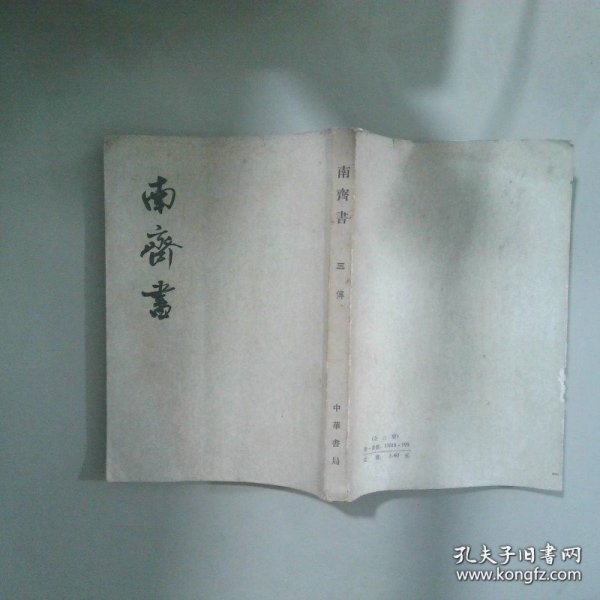 南齊書
南齊書
三 傳
中華書局
孔夫子旧书网
www.kongfz.com